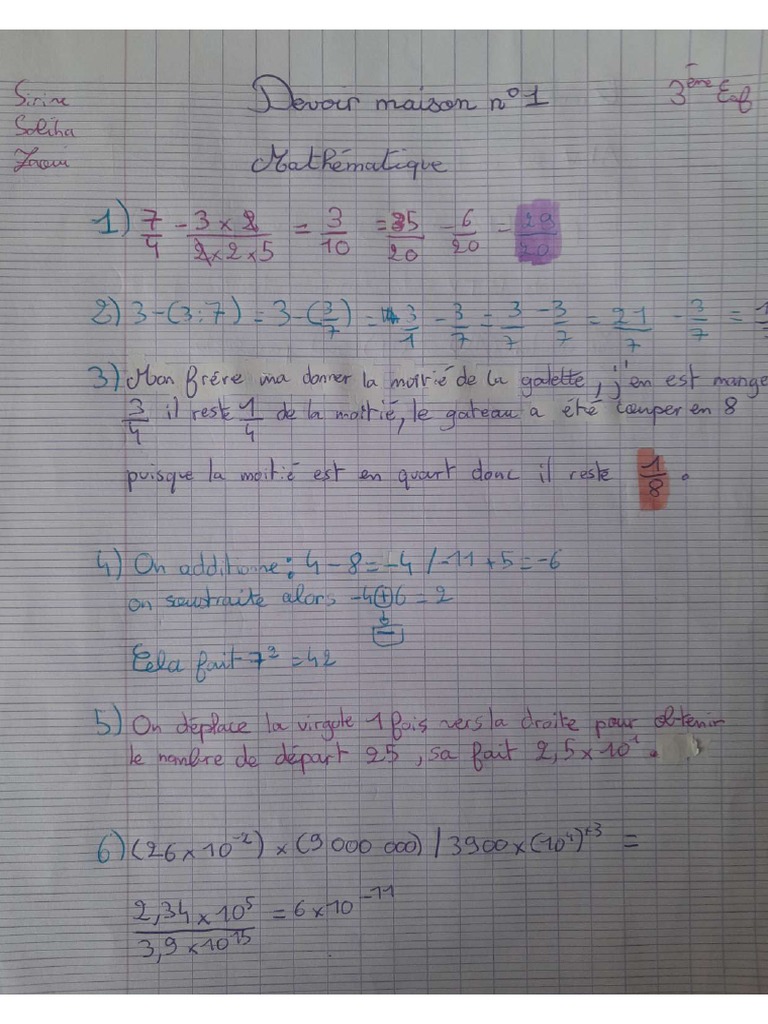 Sirine Devoir maison n°1 3ème
Soliha
Mathématique
1) 7/4 - 3 × 2/2 × 2 × 5 = 3/10 = 35/20 - 6/20 = 29/20
2) 3-(3:7) = 3-(3/7) = 3/1 - 3/7 = 3/7 - 3/7 = 21/7 - 3/7 =
3) Mon frére ma donner la moitié de la galette, j'en est mange
3/4 il reste 1/4 de la moitié, le gateau a été couper en 8
puisque la moitié est en quart donc il reste 1/8.
4) On additionne: 4-8=-4 /-11+5=-6
on soustraite alors -4+6=2
-
Cela fait 7²=42
5) On déplace la virgule 1 fois vers la droite pour obtenir
le nombre de départ 25, sa fait 2,5×10¹.
6) (26×10⁻²)×(9 000 000) / 3900×(10⁴)⁺³ =
2,34×10⁵/3,9×10¹⁵ = 6×10⁻¹¹